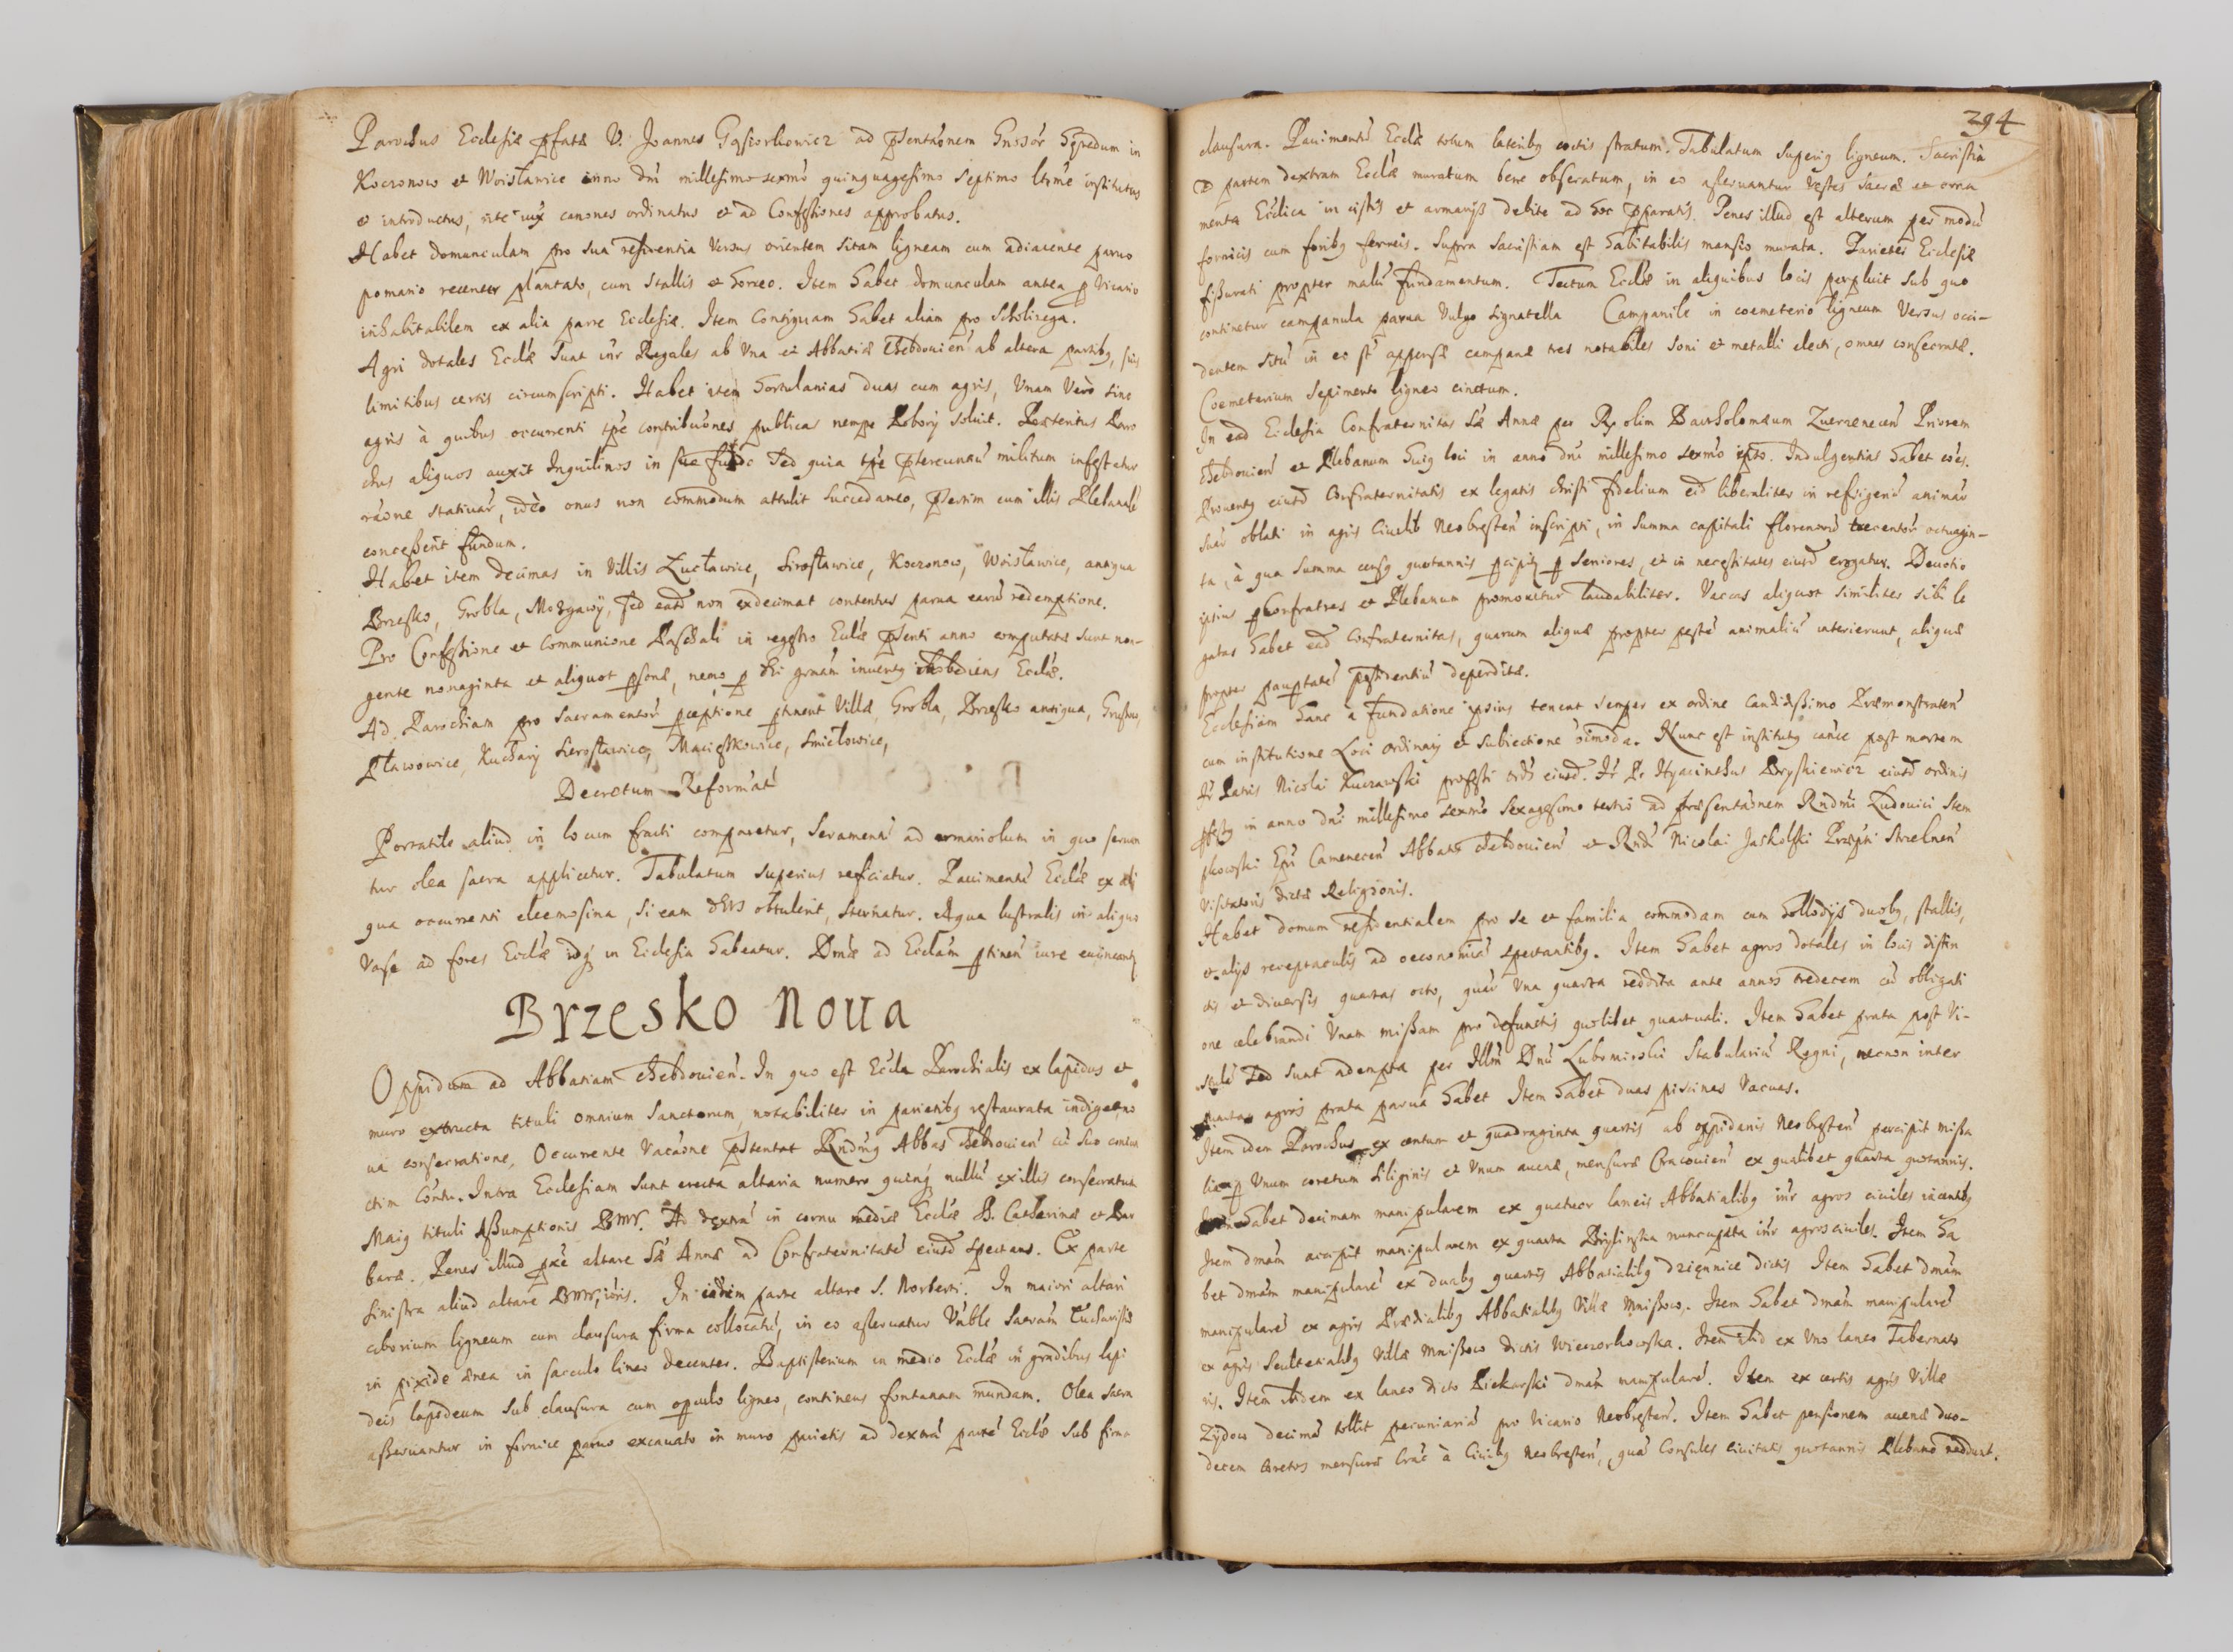 Parochus Ecclesiæ pfatæ V. Joannes Gąsiorkowicz ad pſentãonem Gnosor hæredum in
Koczonow et Woisławice anno dni millesimo sexmo quinquagesimo septimo ltime institutus
et introductus, rite iux canones ordinatus et ad Confessiones approbatus.
Habet domunculam pro sua residentia versus orientem sitam ligneam cum adiacente paruo
pomario recenter plantato, cum stallis et horreo. Item habet domunculam antea p Vicario
inhabitabilem ex alia parte Ecclesiæ. Item Contiguam habet aliam pro Scholirega.
Agri dotales Eccłæ sunt inr Regales ab vna et Abbatiæ Hebdouien ab altera partibg, suis
limitibus certis circumscripti. Habet item hortulanias duas cum agris, vnam vero sine
agris à quibus occurrenti tpe contribuõnes publicas nempe Pobory soluit. Pertentus Paro
chus aliquos auxit Inquilinos in suo fundo sed quia tpe ptereuntiu militum infestatur
rãone statiuar, ideo onus non commodum attulit succedaneo, psertim cum illis Plebanale
concesserit fundum.
Habet item decimas in Villis Łucławice, Sirosławice, Koczonow, Woisławice, antiqua
Brzesko, Grobla, Morgawy, sed easd non exdecimat contentus parua earu redemptione.
Pro Confessione et Communione Paschali in regestro Eccłæ pſenti anno computatæ sunt non-
gentæ nonaginta et aliquot psonæ, nemo p Dei grnam inuentg inobediens Eccłæ.
Ad Parochiam pro Sacramentor pceptione ptinent Villæ, Grobla, Brzesko antiqua,
Pławowice, Kuchary Sierosławice, Maciejkowice, Smiełowice,
Decretum Reformat
Portatile aliud in locum fracti comparetur, seramentu ad armariolum in quo seruan
tur olea sacra applicetur. Tabulatum superius reficiatur. Pauimentu Eccłæ ex ali
qua occurrenti eleemosina, si eam DEUS obtulerit, sternatur. Aqua lustralis in aliquo
vase ad fores Eccłæ in Ecclesia habeatur. Dmæ ad Eccłam ptinen iure euincant
Brzesko Noua
Oppidum ad Abbatiam Hebdouien. In quo est Eccła Parochialis ex lapidus et
muro extructa tituli omnium Sanctorum, notabiliter in parietibg restaurata indiget, no
ua consecratione, Occurrente Vacãone pſentat Rndmg Abbas Hebdouien cu suo conuen
ctim Contu. Intra Ecclesiam sunt erecta altaria numero quinq nullu ex illis consecratum
Maig tituli Assumptionis BMV. Ad dextra in cornu mediæ Eccłæ B. Catharinæ et Bar
baræ. Penes illud pxe altare Sæ Annæ ad Confraternitate eiusd spectans. Ex parte
sinistra aliud altare BMV, In eadem parte altare S. Norberti. In maiori altari
ciborium ligneum cum clausura firma collocatu, in eo asseruatur Vnble Sacram Eucharistiæ
in pixide ænea in sacculo lineo decenter. Baptisterium in medio Eccłæ in gradibus lapi
deis lapideum sub clausura cum opculo ligneo, continens fontanam mundam. Olea sacra
asseruantur in fornice paruo excauato in muro parietis ad dextra parte Eccłæ sub firma
294
clausura. Pauimentu Eccłæ totum lateribg coctis stratum. Tabulatum superig ligneum. Sacristia
ad partem dextram Eccłæ muratum bene obseratum, in eo asseruantur vestes sacræ et orna
menta Ecclica in cistis et armarijs debite ad hoc pparatis. Penes illud est alterum per modu
fornicis cum foribg ferreis. Supra Sacristiam est habitabilis mansio murata. Parietes Ecclesiæ
fissurati propter malu fundamentum. Tectum Eccłæ in aliquibus locis perpluit sub quo
continetur campanula parua vulgo Signatella Campanile in coemeterio ligneum versus occi-
dentem situ in eo st appensæ campanæ tres notabiles soni et metalli electi, omnes consecratæ.
Coemeterium sepimento ligneo cinctum.
In ead Ecclesia Confraternitas Sæ Annæ per olim Bartholomæum Zwerzenecen Priorem
Hebdouien et Plebanum huig loci in anno dni millesimo sexmo Indulgentias habet
Prouentg eiusd Confraternitatis ex legatis christi fidelium eid liberaliter in refrigeriu animar
suar oblati in agris Ciuilib Neobresten inscripti, in summa capitali florenoru trecentor octuagin-
ta, à qua summa censg quotannis pcipitr p Seniores, et in necessitates eiusd erogatur. Deuotio
ipsius p Confratres et Plebanum promouetur laudabiliter. Vaccas aliquot similiter sibi le
gatas habet ead Confraternitas, quarum aliquæ propter peste animaliu interierunt, aliquæ
propter paupertate possidentiu deperditæ.
Ecclesiam hanc a fundatione ipsius tenent semper ex ordine candidissimo Præmonstraten
cum institutione Loci ordinarij et subiectione oimoda. Nunc est institutg canice post mortem
Patris Nicolai Kuczawski professi ord eiusd. Hyacinthus Bryskiewicz eiusd ordinis
pfessg in anno dni millesimo sexmo sexagesimo tertio ad præsentãonem Rndmi Ludouici Stem
pkowski Epi Camenecen Abbatis Hebdouien et Rndi Nicolai Jaskolski Præpti Strzelnen
Visitatoris dictæ Religionis.
Habet domum residentialem pro se et familia commodam cum hollodijs duobg, stallis,
et alijs receptaculis ad oeconomia spectantibg. Item habet agros dotales in locis distin
ctis et diuersis quartas octo, quar vna quarta reddita ante annos tredecem cu obligati
one celebrandi vnam missam pro defunctis quolibet quartuali. Item habet prata post Vi-
stula sed sunt adempta per Illm Dnu Lubomirski Stabulariu Regni, necnon inter
quartas agros prata parua habet Item habet duas piscinas vacuas.
Item idem Parochus ex centum et quadraginta quartis ab oppidanis Neobresten percipit missa
lia p vnum coretum siliginis et vnum auenæ, mensuræ Cracouien ex qualibet quarta quotannis.
Item habet decimam manipularem ex quatuor laneis Abbatialibg inr agros ciuiles iacentibg
Item dmam accipit manipularem ex quarta nuncupata inr agros ciuiles. Item ha
bet dmam manipulare ex duabg quartis Abbatialibg dzięnnice dictis Item habet dmam
manipulare ex agris Prædialibg Abbatialibg Villæ Mniszow. Item habet dmam manipulare
ex agris Scultetialibg Villæ Mniszow dictis Wieczorkowska. Item ibid ex vno laneo Tabernato
ris. Item ibidem ex laneo dicto Piekarski dmam manipulare. Item ex certis agris Villæ
Zydow decima tollit pecuniaria pro Vicario Neobresten. Item habet pensionem auenæ duo-
decem coretos mensuræ Crac à Ciuibg Neobresten, qua Consules Ciuitatis quotannis Plebano reddunt.